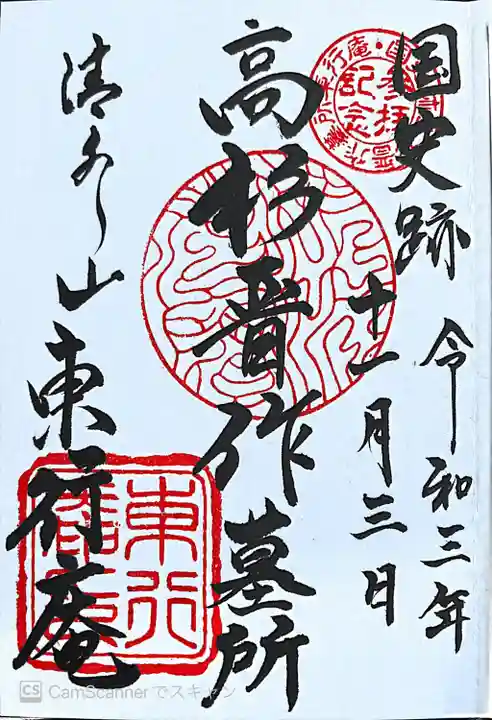 国史跡
令和三年
十一月三日
高杉晋作墓所
清水山東行庵
参拝
記念
東行
CS CamScannerでスキャン